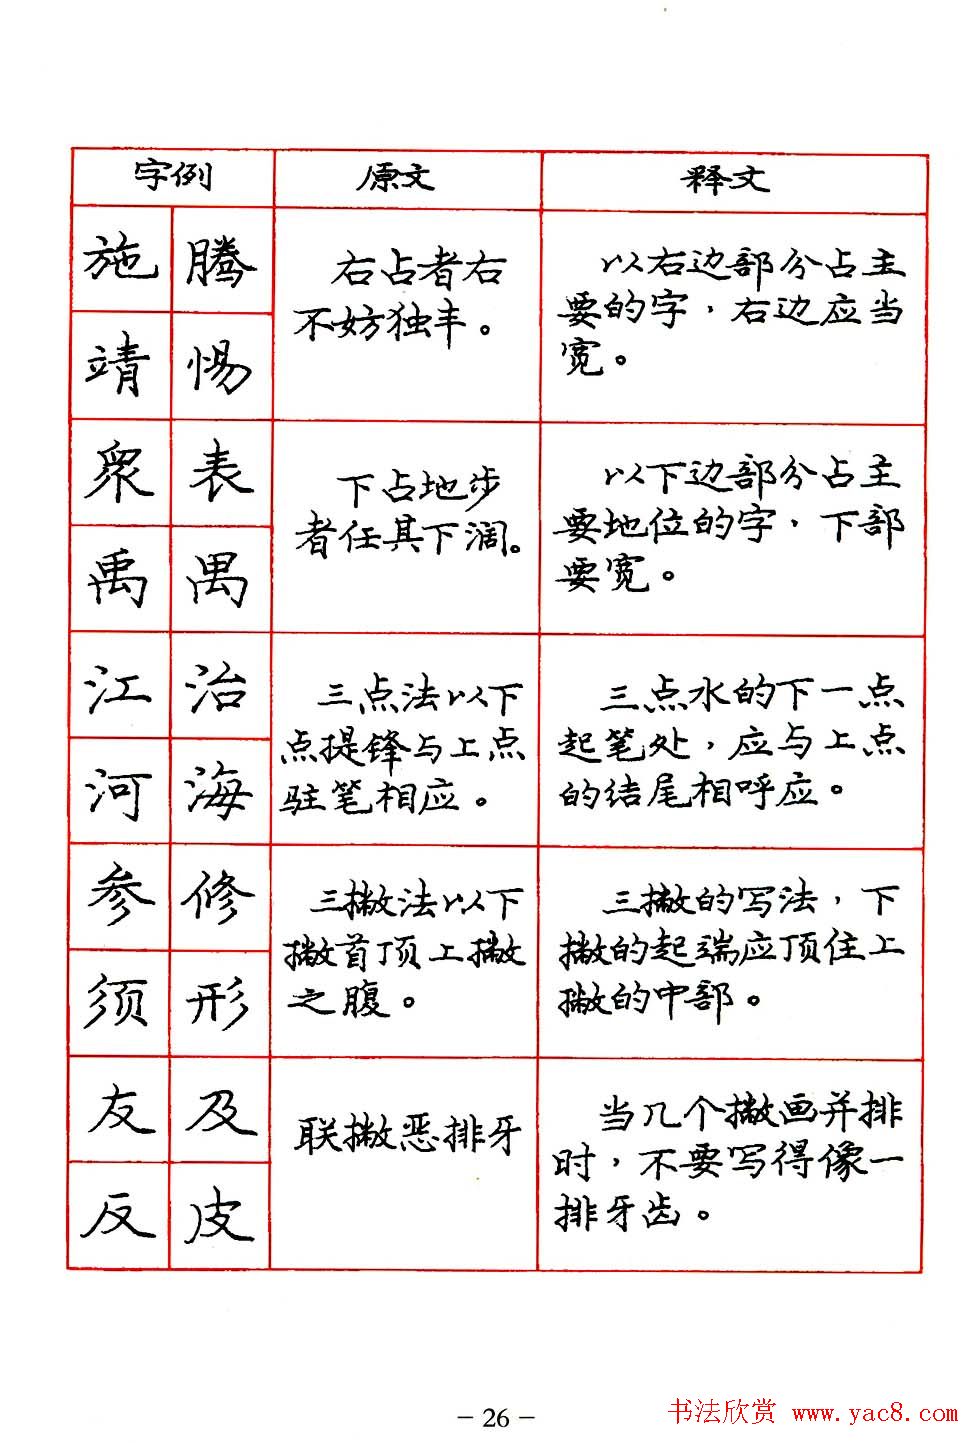 字例 原文 释文
施 腾
靖 惕
右占者右
不妨独丰。
以右边部分占主
要的字，右边应当
宽。
众 表
禹 禺
下占地步
者任其下阔。
以下边部分占主
要地位的字，下部
要宽。
江 治
河 海
三点法以下
点提锋与上点
驻笔相应。
三点水的下一点
起笔处，应与上点
的结尾相呼应。
参 修
须 形
三撇法以下
撇首顶上撇
之腹。
三撇的写法，下
撇的起端应顶住上
撇的中部。
友 及
反 皮
联撇恶排牙
当几个撇画并排
时，不要写得像一
排牙齿。
- 26 -
书法欣赏 www.yac8.com